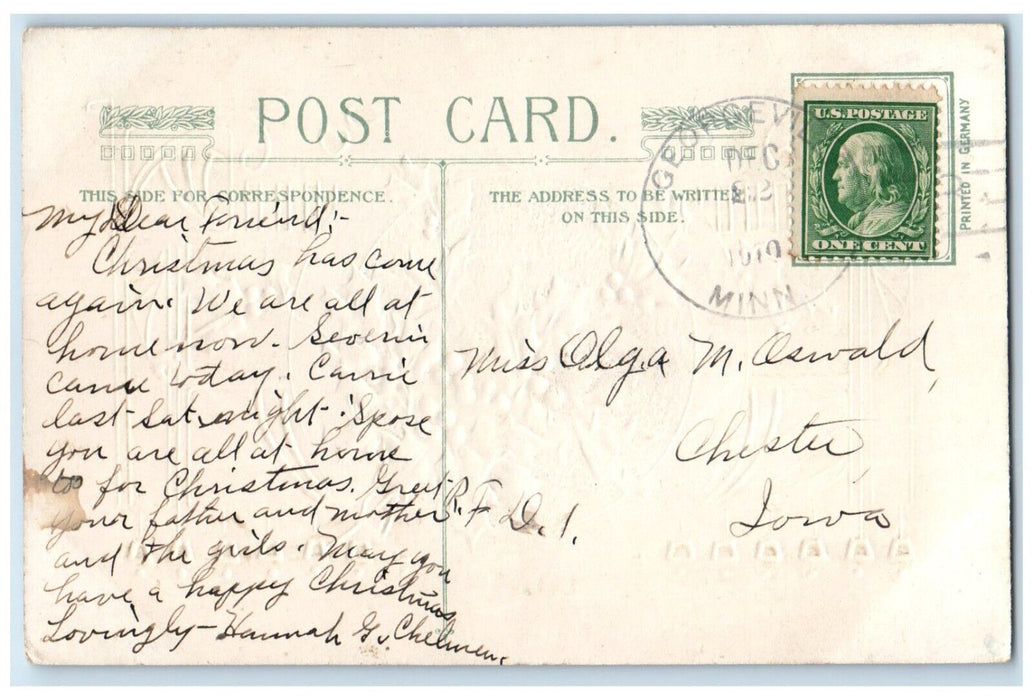 POST CARD.
THIS SIDE FOR CORRESPONDENCE.
THE ADDRESS TO BE WRITTEN
ON THIS SIDE.
PRINTED IN GERMANY
U.S. POSTAGE
ONE CENT
GEORGEVI
DEC
22
1910
MINN.
My Dear Friend:-
Christmas has come
again. We are all at
home now. Severin
came today. Carrie
last Sat. night. 'Spose
you are all at home
too for Christmas. Greet
your father and mother
and the girls. May you
have a happy Christmas
Lovingly- Hannah G.
Miss Olga M. Oswald,
Chester,
R.F.D.1.
Iowa